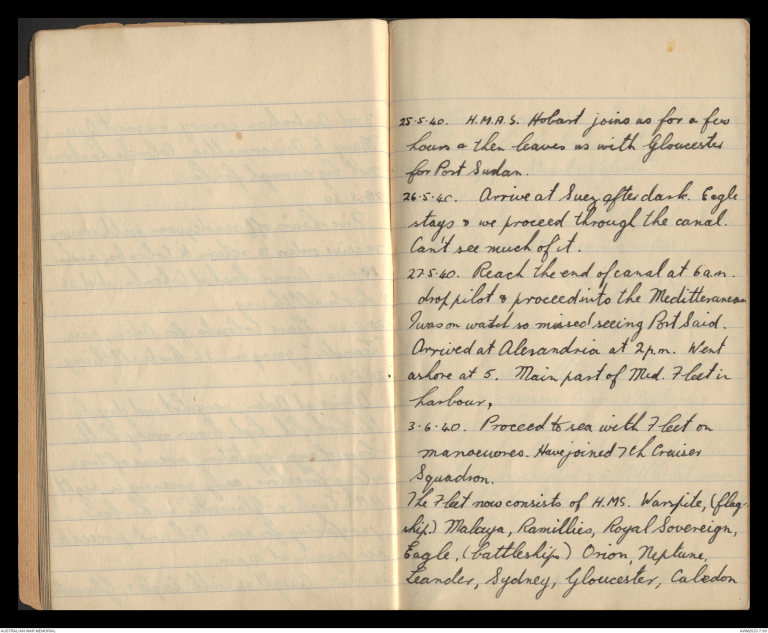 25.5.40. H.M.A.S. Hobart joins us for a few
hours & then leaves us with Gloucester
for Port Sudan.
26.5.40. Arrive at Suez after dark. Eagle
stays & we proceed through the canal.
Can't see much of it.
27.5.40. Reach the end of canal at 6am.
drop pilot & proceed into the Meditteranean
I was on watch so missed seeing Port Said.
Arrived at Alexandria at 2p.m. Went
ashore at 5. Main part of Med. Fleet in
harbour.
3.6.40. Proceed to sea with Fleet on
manoeuvres. Have joined 7th Cruiser
Squadron.
The Fleet now consists of H.MS. Warspite, (flag-
ship.) Malaya, Ramillies, Royal Sovereign,
Eagle, (battleships) Orion, Neptune,
Leander, Sydney, Gloucester, Caledon
AUSTRALIAN WAR MEMORIAL